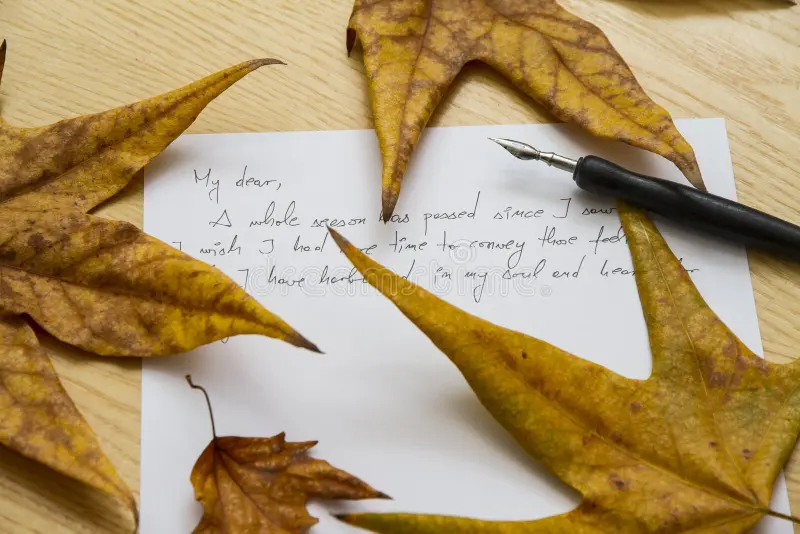 My dear,
A whole season has passed since I saw
I wish I had time to convey those
I have in my soul and